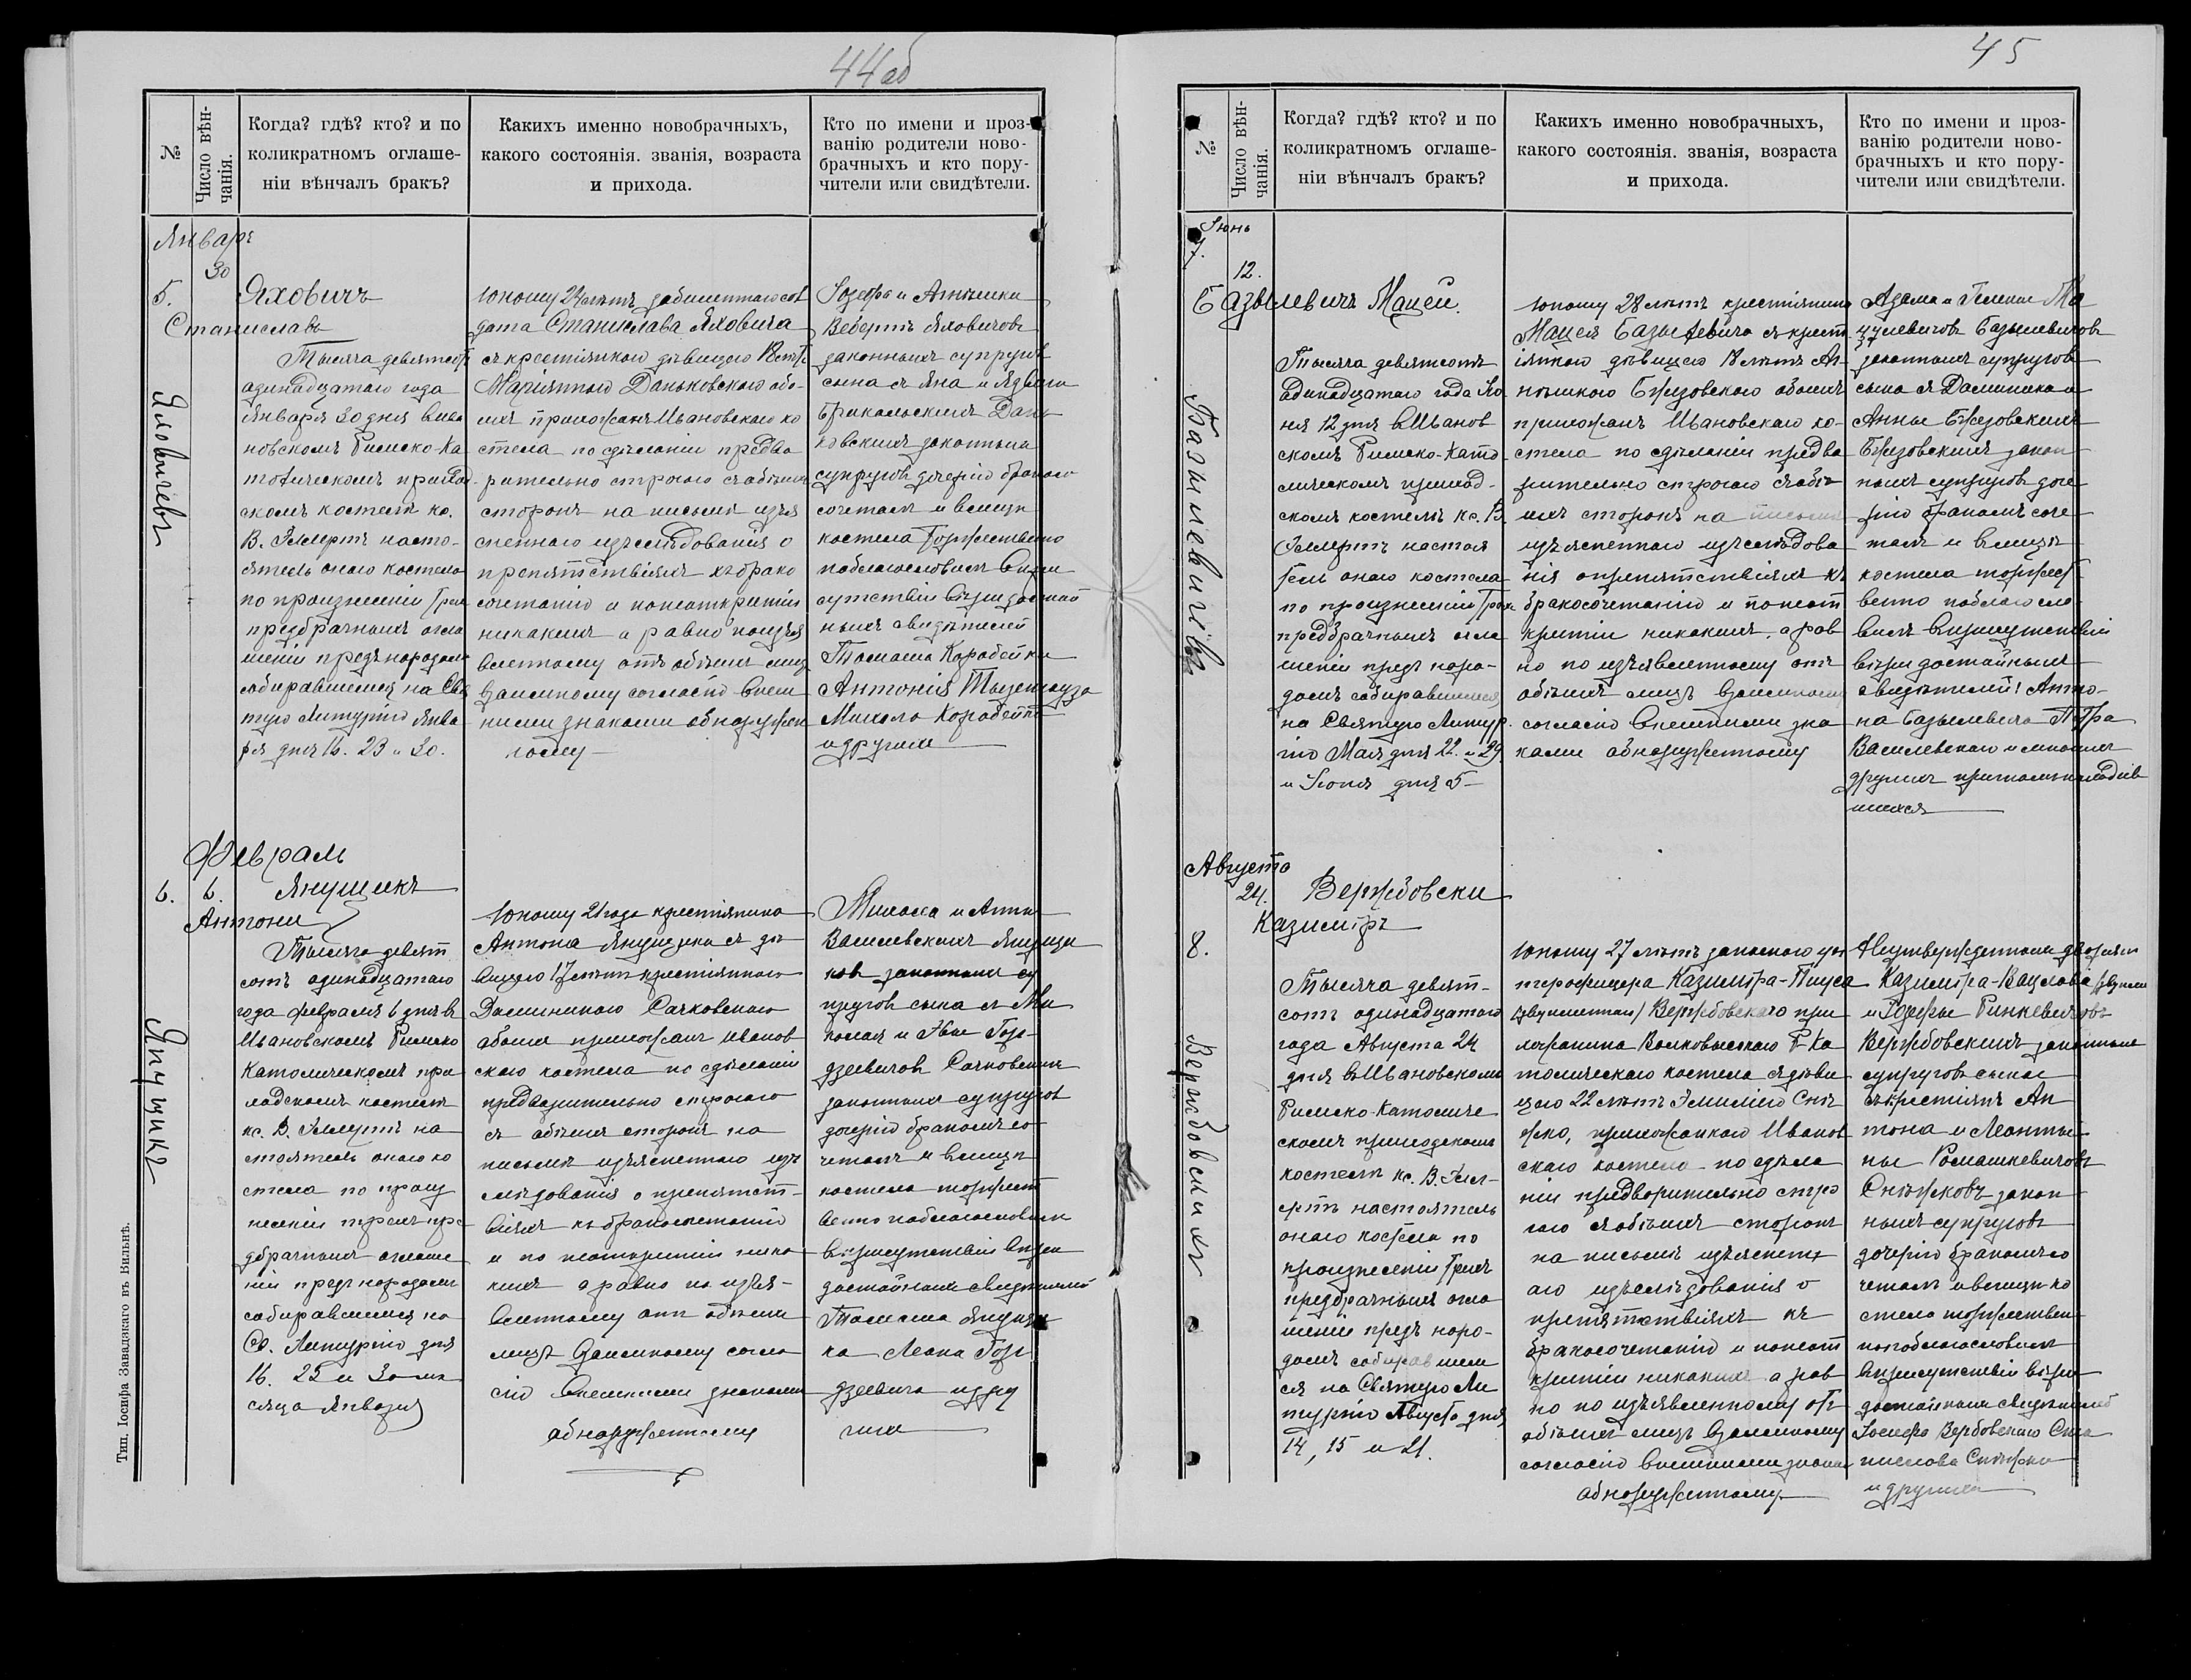 44об
№
Число вѣн-
чанія.
Когда? гдѣ? кто? и по
коликратномъ оглаше-
ніи вѣнчалъ бракъ?
Какихъ именно новобрачныхъ,
какого состоянія. званія, возраста
и прихода.
Кто по имени и проз-
ванію родители ново-
брачныхъ и кто пору-
чители или свидѣтели.
Январь
30
5.
Яховичъ
Станиславъ
Яховичевъ
Тысяча девятсотъ
одинадцатаго года
Января 30 дня въ Ива
новскомъ Римско-Ка
толическомъ приход
скомъ костелѣ кс.
В. Эллертъ насто-
ятель онаго костела
по произнесеніи трехъ
предбрачныхъ огла
шеній предъ народомъ
собиравшемся на Свя
тую Литургію Янва
ря дня 16. 23 и 30.
Юношу 24 лѣтъ
дата Станислава Яховича
съ крестьянкою дѣвицею 18 лѣтъ
Маріянною Даньковскою обо-
ихъ прихожанъ Ивановскаго ко
стела по сдѣланіи предва
рительно строгаго съ обѣихъ
сторонъ на письмѣ изъя
сненнаго изъслѣдованія о
препятствіяхъ къ брако
сочетанію и понеоткрытіи
никакихъ а равно поизъя
вленному отъ обѣихъ лицъ
взаимному согласію внѣш
ними знаками обнаружен
ному
Іозефа и Антонины
Вебертъ Яховичовъ
законныхъ супруговъ
сына съ Яна и Ядвиги
Дань
ковскихъ законныхъ
супруговъ дочерію бракомъ
сочеталъ и въ лицѣ
костела торжественно
поблагословилъ въ при
сутствіи вѣридостой
ныхъ свидѣтелей
Томаша Коробейки
Антонія
Михала Коробейки
и другихъ
Февраль
6.
6.
Янущикъ
Антони
Янущикъ
Тысяча девят
сотъ одинадцатаго
года Февраля 6 дня въ
Ивановскомъ Римско
Католическомъ при
ходскомъ костелѣ
кс. В. Эллертъ на
стоятель онаго ко
стела по произ
несеніи трехъ пре
дбрачныхъ оглаше
ній предъ народомъ
собиравшемся на
Св. Литургію дня
16. 23 и 30 мѣ
сяца Января
Юношу 21 года крестьянина
Антона Янущика съ дѣ
вицею 17 лѣтъ крестьянкою
Доминикою Сачковскою
обоихъ прихожанъ Иванов
скаго костела по сдѣланіи
предварительно строгаго
съ обѣихъ сторонъ на
письмѣ изъясненнаго изъ
слѣдованія о препятст-
віяхъ къ бракосочетанію
и по неоткрытіи ника
кихъ а равно по изъя-
вленному отъ обѣихъ
лицъ взаимному согла
сію внѣшними знаками
обнаруженному
Михала и Анны
Василевскихъ Янущи
ковъ законныхъ су
пруговъ сына съ Ми
колая и Евы Гор-
дзеевичовъ Сачковскихъ
законныхъ супруговъ
дочерію бракомъ со
четалъ и въ лицѣ
костела торжест
венно поблагословилъ
въ присутствіи вѣри
достойныхъ свидѣтелей
Томаша Янущи
ка Леона Гор
дзеевича и дру
гихъ
Тип. Іосифа Завадзкаго въ Вильнѣ.
45
№
Число вѣн-
чанія.
Когда? гдѣ? кто? и по
коликратномъ оглаше-
ніи вѣнчалъ бракъ?
Какихъ именно новобрачныхъ,
какого состоянія. званія, возраста
и прихода.
Кто по имени и проз-
ванію родители ново-
брачныхъ и кто пору-
чители или свидѣтели.
Іюнь
7.
12.
Базылевичъ Мацей.
Базылевичевъ
Тысяча девятсотъ
адинадцатаго года Ію
ня 12 дня въ Иванов
скомъ Римско-Като
лическомъ приход-
скомъ костелѣ кс. В.
Эллертъ настоя
тель онаго костела
по произнесеніи трехъ
предбрачныхъ огла
шеній предъ наро-
домъ собиравшемся
на Святую Литур
гію Мая дня 22. и 29.
и Іюня дня 5
Юношу 28 лѣтъ крестьянина
Мацея Базылевича съ крест
іянкою дѣвицею 18 лѣтъ Ан-
ною обоихъ
прихожанъ Ивановскаго ко-
стела по сдѣланіи предва
рительно строгаго съ обѣ
ихъ сторонъ на письмѣ
изъясненнаго изъслѣдова
нія о препятствіяхъ къ
бракосочетанію и понеот
крытіи никакихъ, а рав
но по изъявленному отъ
обѣихъ лицъ взаимному
согласію внѣшними зна
ками обнаруженному
Адама и Гелены Ма
цулевичовъ Базылевичовъ
законныхъ супруговъ
сына съ Доминика и
Анны
закон
ныхъ супруговъ доче
рію бракомъ соче
талъ и въ лицѣ
костела торжест
венно поблагосло
вилъ въ присутствіи
вѣридостойныхъ
свидѣтелей: Анто-
на Базылевича Петра
Василевскаго и многихъ
другихъ
шихся
Августа
24.
Вержбовски
Казимиръ
8.
Вержбовскихъ
Тысяча девят-
сотъ одинадцатаго
года Августа 24
дня въ Ивановскомъ
Римско-Католиче
скомъ приходскомъ
костелѣ кс. В. Эл-
лертъ настоятель
онаго костела по
произнесеніи трехъ
предбрачныхъ огла
шеній предъ наро-
домъ собиравшем
ся на Святую Ли
тургію Августа дня
14, 15 и 21.
Юношу 27 лѣтъ запаснаго ун
терофицера Казимира-Пиуса
(двуименнаго) Вержбовскаго при
хожанина Волковыскаго Р-Ка
толическаго костела съ дѣви
цею 22 лѣтъ Эмиліею Снѣ
жко, прихожанкою Иванов
скаго костела по сдѣла
ніи предварительно стро
гаго съ обѣихъ сторонъ
на письмѣ изъясненн
аго изъслѣдованія о
препятствіяхъ къ
бракосочетанію и понеот
крытіи никакихъ а рав
но по изъявленному отъ
обѣихъ лицъ взаимному
согласію внѣшними знаками
обнаруженному
Неутвержденныхъ дворянъ
Казимира-Вацлава (двуимен
и Юзефы Ринкевичовъ
Вержбовскихъ законныхъ
супруговъ сына
съ крестіянъ Ан
тона и Леонты-
ны Ромашкевичовъ
Снѣжковъ закон
ныхъ супруговъ
дочерію бракомъ со
четалъ и въ лицѣ ко
стела торжествен
но поблагословилъ
въ присутствіи вѣри
достойныхъ свидѣтелей
Іосифа Вербовскаго Ста
нислава Снѣжки
и другихъ